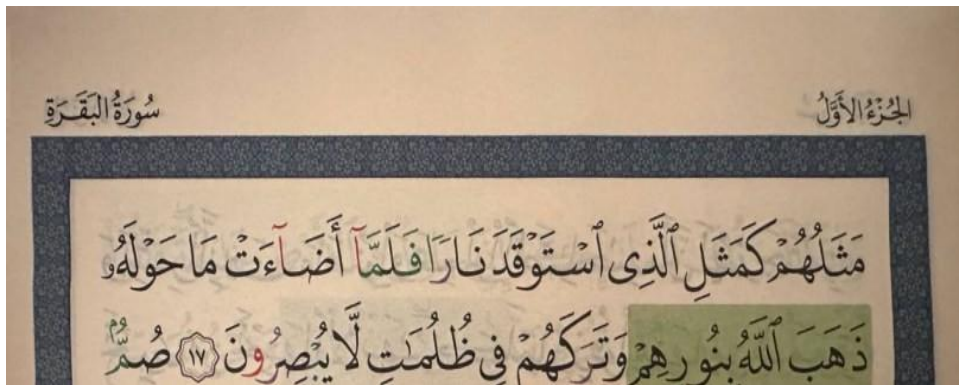 الجُزْءُ الأَوَّلُ
سُورَةُ البَقَرَةِ
مَثَلُهُمْ كَمَثَلِ ٱلَّذِى ٱسْتَوْقَدَ نَارًا فَلَمَّآ أَضَآءَتْ مَا حَوْلَهُۥ
ذَهَبَ ٱللَّهُ بِنُورِهِمْ وَتَرَكَهُمْ فِى ظُلُمَٰتٍ لَّا يُبْصِرُونَ ١٧ صُمٌّۢ